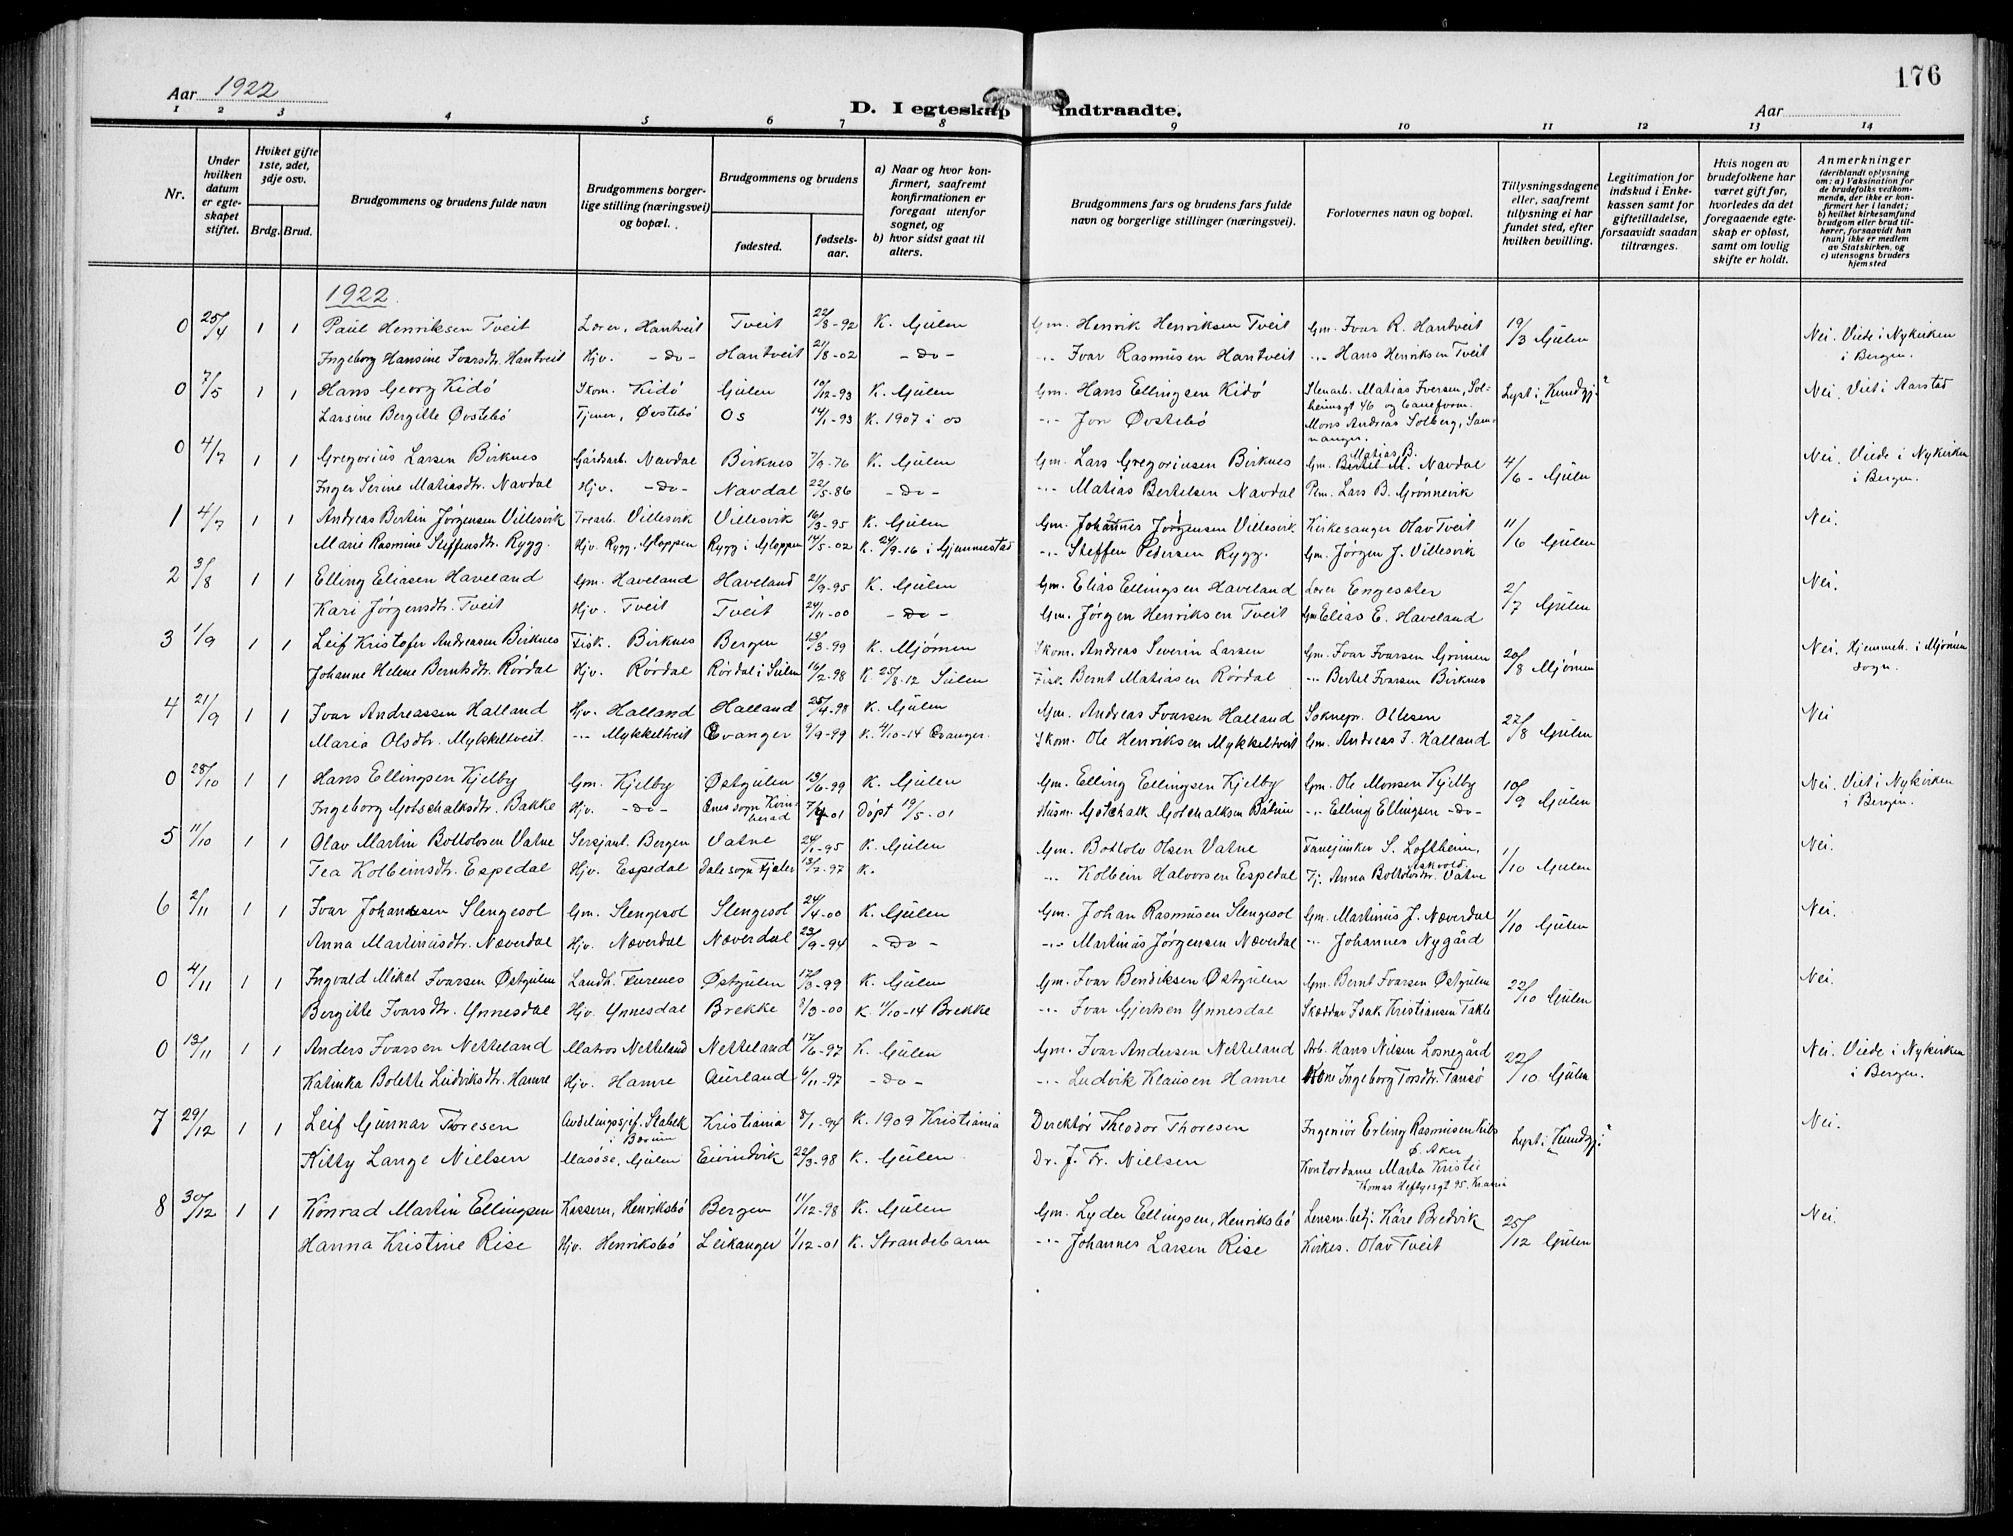 176
Aar 1922
D. I egteskap indtraadte.
Aar
1 2 3 4 5 6 7 8 9 10 11 12 13 14
Nr.
Under hvilken datum er egteskapet stiftet.
Hviket gifte 1ste, 2det, 3dje osv.
Brdg. Brud.
Brudgommens og brudens fulde navn
Brudgommens borgerlige stilling (næringsvei) og bopæl.
Brudgommens og brudens
fødested.
fødselsaar.
a) Naar og hvor konfirmert, saafremt konfirmationen er foregaat utenfor sognet, og
b) hvor sidst gaat til alters.
Brudgommens fars og brudens fars fulde navn og borgerlige stillinger (næringsvei).
Forlovernes navn og bopæl.
Tillysningsdagene eller, saafremt tillysning ei har fundet sted, efter hvilken bevilling.
Legitimation for indskud i Enkekassen samt for giftetilladelse, forsaavidt saadan tiltrænges.
Hvis nogen av brudefolkene har været gift før, hvorledes da det foregaaende egteskap er opløst, samt om lovlig skifte er holdt.
Anmerkninger (deriblandt oplysning om: a) Vaksination for de brudefolks vedkommende, der ikke er konfirmert her i landet; b) hvilket kirkesamfund brudgom eller brud tilhører, forsaavidt han (hun) ikke er medlem av Statskirken, og c) utensogns bruders hjemsted
1922.
0 25/4 1 1 Paul Henriksen Tveit Lærer, Hantveit Tveit 22/8-92 K. Gulen Gm. Henrik Henriksen Tveit Gm. Ivar R. Hantveit 19/3 Gulen Nei. Viede i Nykirken
Ingeborg Hansine Ivarsdtr. Hantveit Hjv. -do- Hantveit 21/8-02 -do- -"- Ivar Rasmusen Hantveit -"- Hans Henriksen Tveit i Bergen.
0 7/5 1 1 Hans Georg Kidø Skom. Kidø Gulen 19/12-93 K. Gulen Gm. Hans Ellingsen Kidø Stenarb. Matias Iversen, Sol- Lyst i Kundgj. Nei. Viet i Aarstad
Larsine Bergitte Øvstebø Tjener, Øvstebø Os 14/1-93 K. 1907 i os -"- Jon Øvstebø heimsgt 46 og
Mons Andreas Solberg, Sam-
nanger.
0 4/7 1 1 Gregorius Larsen Birknes Gårdsarb. Navdal Birknes 7/9-76 K. Gulen Gm. Lars Gregoriusen Birknes Gm. Bertel M. Navdal 4/6 - Gulen Nei. Viede i Nykirken
Matias B.
Inger Serine Matiasdtr. Navdal Hjv. -do- Navdal 22/5-86 -do- -"- Matias Bertelsen Navdal Pem. Lars B. Grønnevik i Bergen.
1 4/7 1 1 Andreas Bertin Jørgensen Villesvik Trearb. Villesvik Villesvik 16/3-95 K. Gulen Gm. Johannes Jørgensen Villesvik Kirkesanger Olav Tveit 11/6 Gulen Nei.
Marie Rasmine Steffensdtr. Rygg. Hjv. Rygg, Gloppen Rygg i Gloppen 14/5-02 K. 24/9-16 i Gjemmestad -"- Steffen Pedersen Rygg. Gm. Jørgen J. Villesvik
2 3/8 1 1 Elling Eliasen Haveland Gm. Haveland Haveland 21/9-95 K. Gulen Gm. Elias Ellingsen Haveland Lærer Engesæter 2/7 Gulen Nei.
Kari Jørgensdtr. Tveit Hjv. Tveit Tveit 24/11-00 -do- Gm. Jørgen Henriksen Tveit Gm Elias E. Haveland
3 1/9 1 1 Leif Kristofer Andreasen Birknes Fisk. Birknes Bergen 13/3-99 K. Mjømen Skom. Andreas Severin Larsen Gm. Ivar Ivarsen Grinen 20/8 Mjømen Nei. Hjemmeh. i Mjømen
Johanne Helene Berntsdtr. Rørdal Hjv. Rørdal Rørdal i Sulen 16/2-98 K. 25/8-12 Sulen Fisk. Bernt Matiasen Rørdal -"- Bertel Ivarsen Birknes sogn.
4 21/9 1 1 Ivar Andreassen Halland Hjv. Halland Halland 25/4-98 K. Gulen Gm. Andreas Ivarsen Halland Soknepr. Ottesen 27/8 Gulen Nei
Maria Olsdtr. Mykkeltveit. -"- Mykkeltveit Evanger 9/9-99 K. 4/10-14 Evanger. Skom. Ole Henriksen Mykkeltveit Gm. Andreas I. Halland
0 28/10 1 1 Hans Ellingsen Kjelby Gm. Kjelby Østgulen 13/6-99 K. Gulen Gm. Elling Ellingsen Kjelby Gm. Ole Monsen Kjelby 10/9 Gulen Nei. Viet i Nykirken
Ingeborg Gotschalksdtr. Bakke Hjv. -do- Enes sogn Kvin- 7/4-01 Døpt 19/5-01 Husm. Gotchalk Gotchalksen Båtnin -"- Elling Ellingsen -do- i Bergen.
herad
5 11/10 1 1 Olav Martin Bottolvsen Vatne Sersjant. Bergen Vatne 24/1-95 K. Gulen Gm. Bottolv Olsen Vatne Fanejunker S. Loftheim, 1/10 Gulen Nei.
Askvold
Tea Kolbeinsdtr. Espedal Hjv. Espedal Dale sogn Fjaler 13/7-97 K. -"- Kolbein Halvorsen Espedal Tj. Anna Bottolvsdtr. Vatne
6 2/11 1 1 Ivar Johansen Slengesol Gm. Slengesol Slengesol 24/4-00 K. Gulen Gm. Johan Rasmusen Slengesol Gm. Martinus J. Næverdal 1/10 Gulen Nei.
Anna Martinusdtr. Næverdal Hjv. Næverdal Næverdal 23/9-94 -do- -"- Martinus Jørgensen Næverdal -"- Johannes Nygård
0 4/11 1 1 Ingvald Mikal Ivarsen Østgulen Landh. Furenes Østgulen 17/3-99 K. Gulen Gm. Ivar Bendiksen Østgulen Gm. Bernt Ivarsen Østgulen 22/10 Gulen Nei.
Bergitte Ivarsdtr. Ynnesdal Hjv. Ynnesdal Brekke 8/3-00 K. 11/10-14 Brekke -"- Ivar Gjertsen Ynnesdal Skædder Isak Kristiansen Takle
0 13/11 1 1 Anders Ivarsen Netteland Matros Netteland Netteland 17/6-97 K. Gulen Gm. Ivar Andersen Netteland Arb. Hans Nilsen Losnegård 22/10 Gulen Nei. Viede i Nykirken
Katinka Bolette Ludviksdtr. Hamre Hjv. Hamre Aurland 6/11-97 -do- -"- Ludvik Klausen Hamre Kone Ingeborg Torsdtr. Tansø i Bergen.
7 29/12 1 1 Leif Gunnar Toresen Avdelingssjef. Stabek Kristiania 8/1-94 K. 1909 Kristiania Direktør Theodor Thoresen Ingeniør Erling Rasmusen Lyst i Kundgj. Nei.
i Bærum Ø. Aker
Kitty Lange Nielsen Masøse, Gulen Eivindvik 22/3-98 K. Gulen. Dr. J. Fr. Nielsen Kontordame Marta Kristie
Thomas Heftyesgt 95. Kr.ania
8 30/12 1 1 Konrad Martin Ellingsen Kasserer, Henriksbø Bergen 11/12-98 K. Gulen Gm. Lyder Ellingsen, Henriksbø Lensm.betj. Kåre Bredvik 25/12 Gulen Nei.
Hanna Kristine Rise Hjv. Henriksbø Leikanger 1/12-01 K. Strandebarm -"- Johannes Larsen Rise Kirkes. Olav Tveit